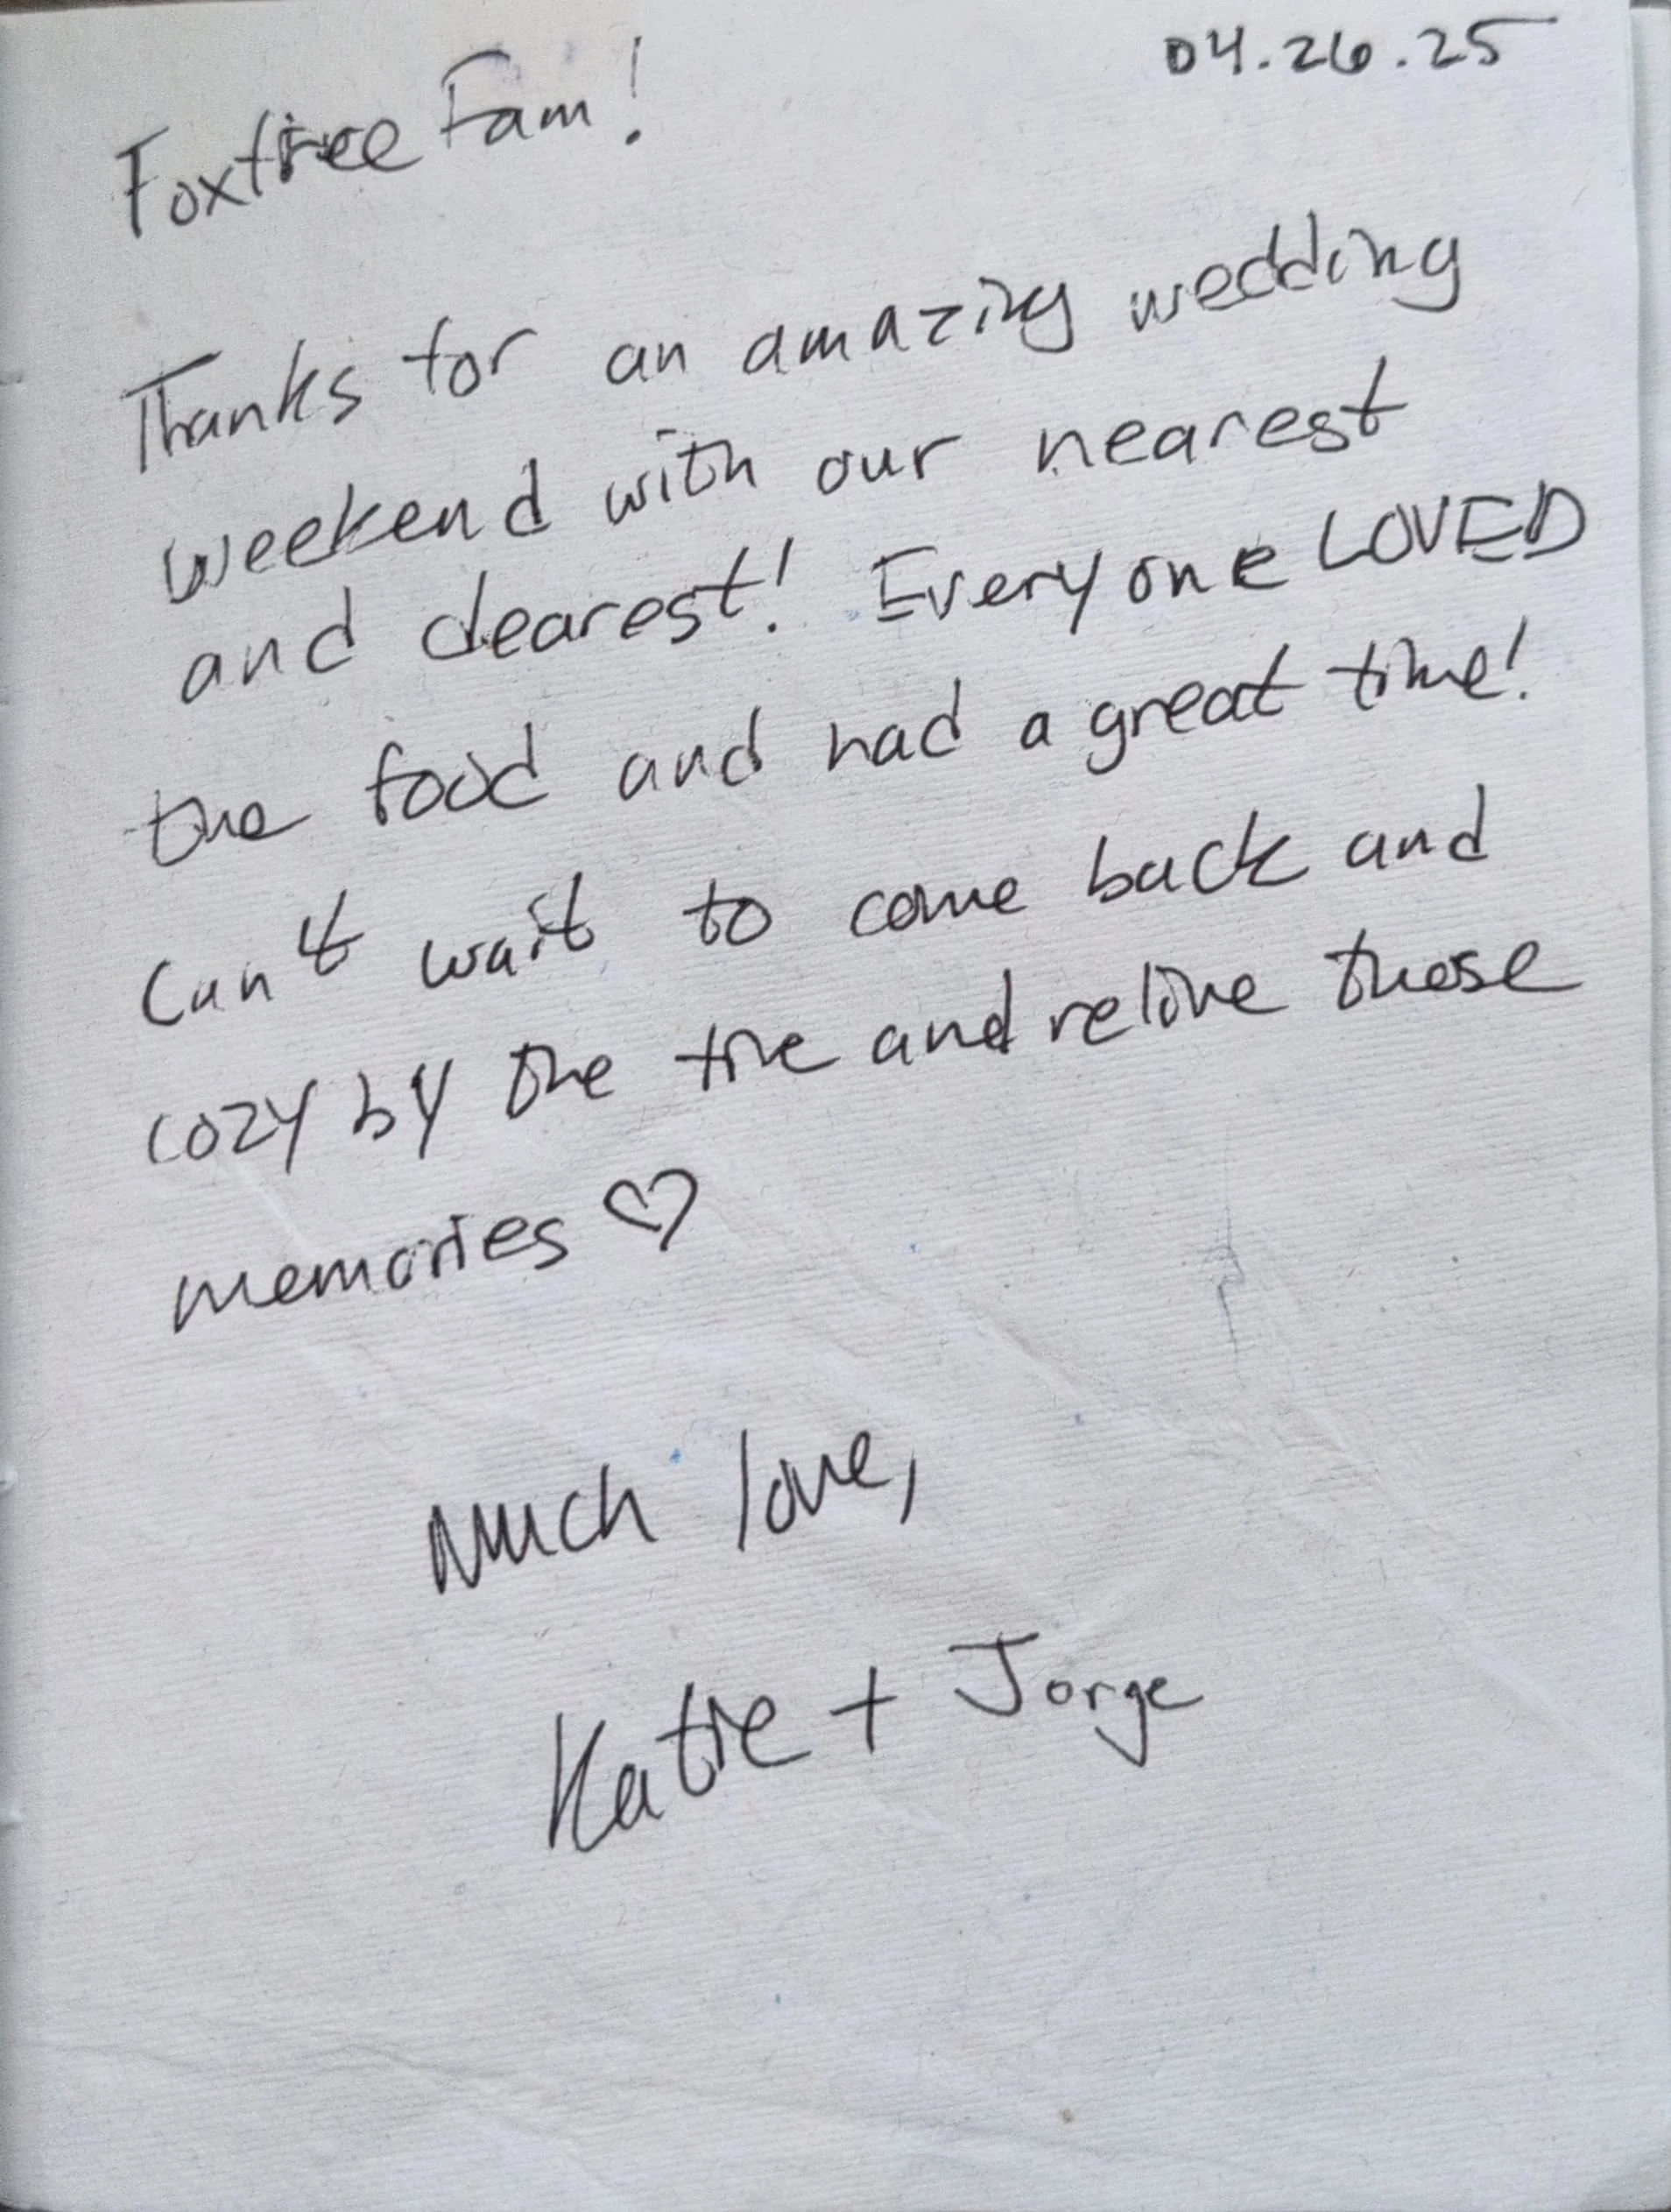 04.26.25
Foxtree Fam!
Thanks for an amazing wedding
weekend with our nearest
and dearest! Everyone LOVED
the food and had a great time!
Can't wait to come back and
cozy by the fire and relive these
memories ♡
Much love,
Katie + Jorge